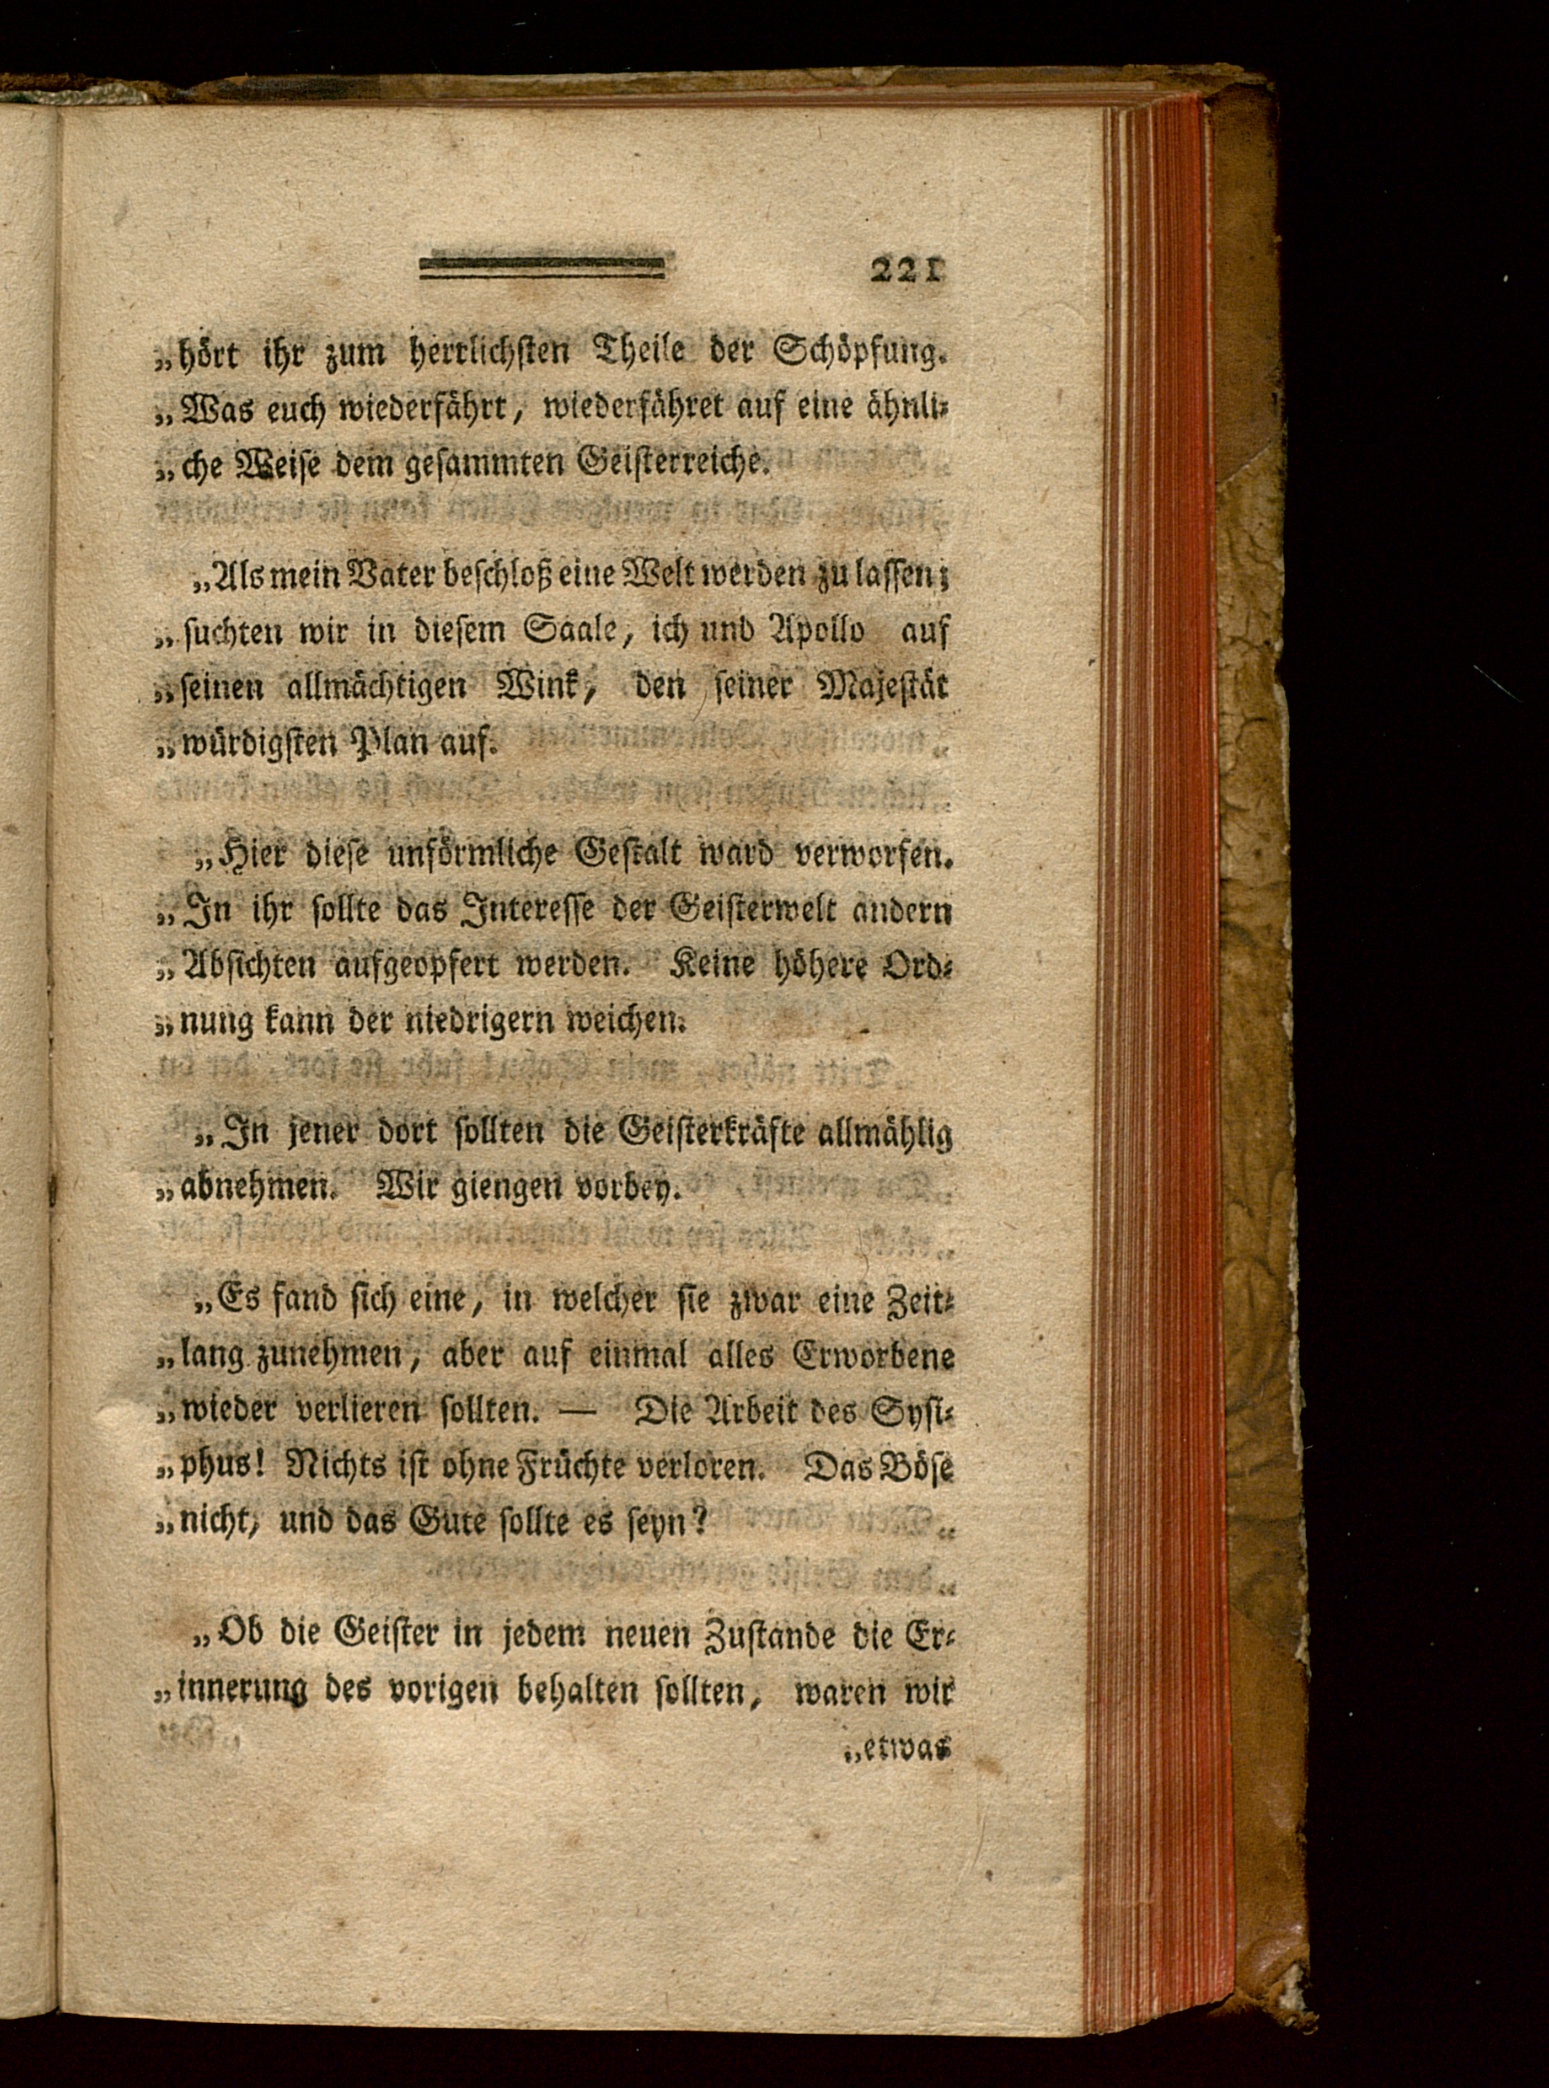 221
„hört ihr zum herrlichsten Theile der Schöpfung.
„Was euch wiederfährt, wiederfähret auf eine ähnli-
„che Weise dem gesammten Geisterreiche.
„Als mein Vater beschloß eine Welt werden zu lassen;
„suchten wir in diesem Saale, ich und Apollo auf
„seinen allmächtigen Wink, den seiner Majestät
„würdigsten Plan auf.
„Hier diese unförmliche Gestalt ward verworfen.
„In ihr sollte das Interesse der Geisterwelt andern
„Absichten aufgeopfert werden. Keine höhere Ord-
„nung kann der niedrigern weichen.
„In jener dort sollten die Geisterkräfte allmählig
„abnehmen. Wir giengen vorbey.
„Es fand sich eine, in welcher sie zwar eine Zeit-
„lang zunehmen, aber auf einmal alles Erworbene
„wieder verlieren sollten. — Die Arbeit des Sysi-
„phus! Nichts ist ohne Früchte verloren. Das Böse
„nicht, und das Gute sollte es seyn?
„Ob die Geister in jedem neuen Zustande die Er-
„innerung des vorigen behalten sollten, waren wir
„etwas